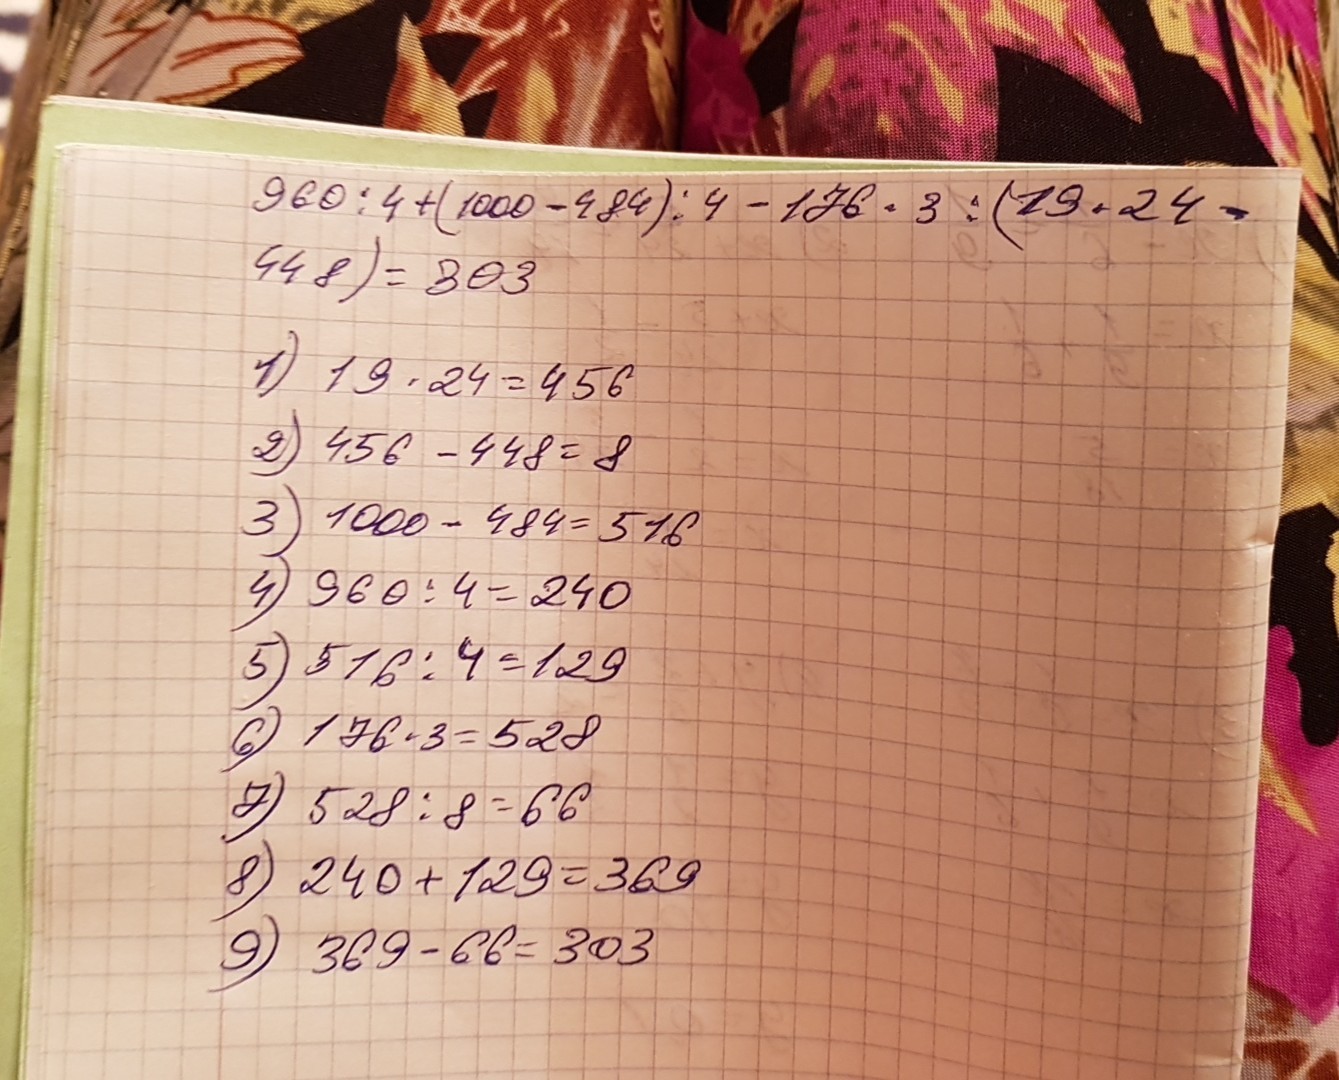 960:4+(1000-484):4-176·3:(19·24-
448)=303
1) 19·24=456
2) 456-448=8
3) 1000-484=516
4) 960:4=240
5) 516:4=129
6) 176·3=528
7) 528:8=66
8) 240+129=369
9) 369-66=303